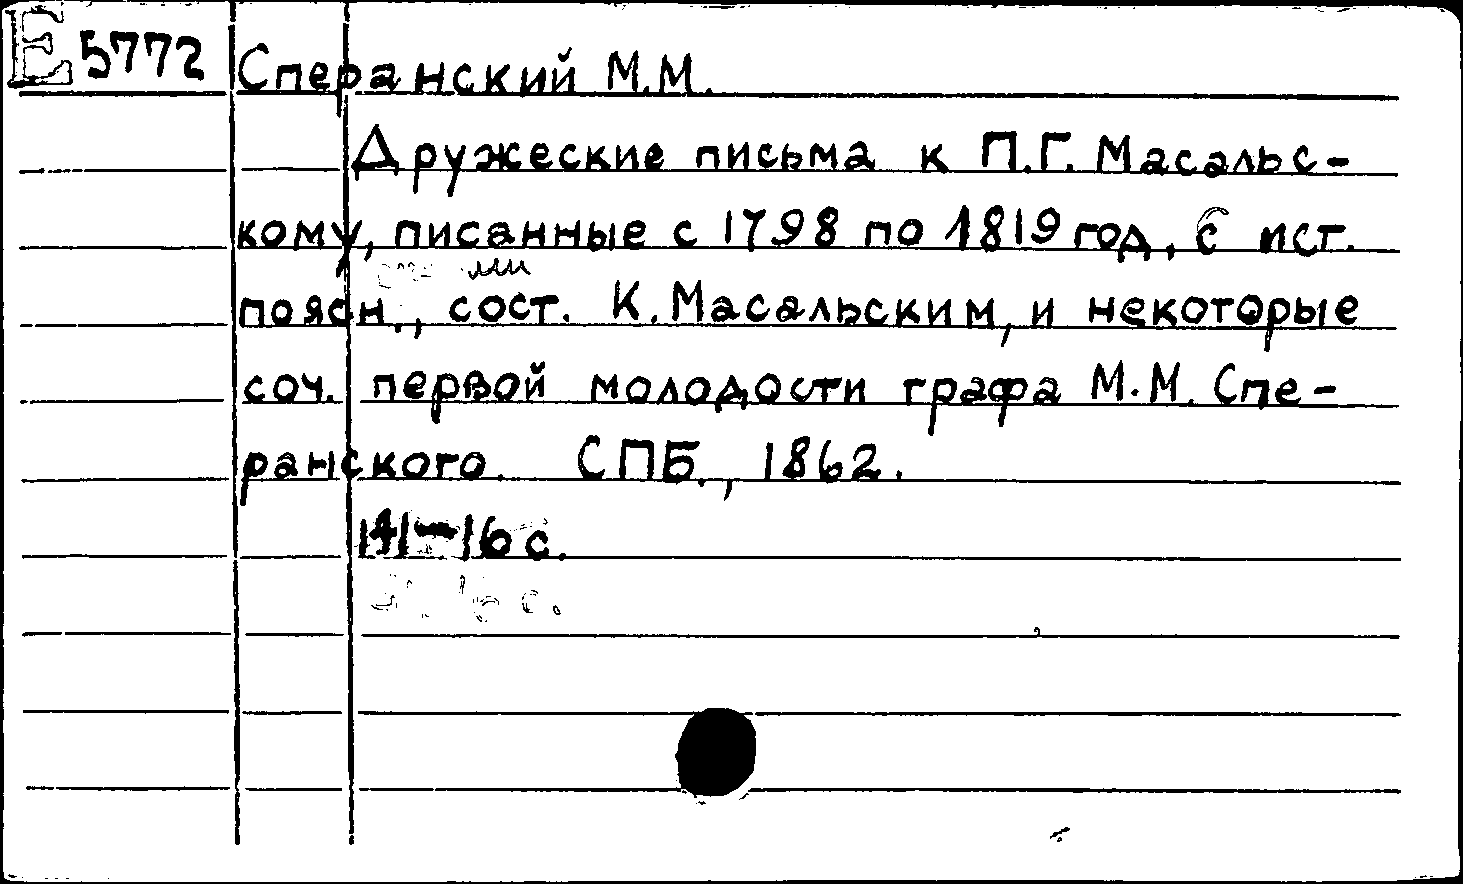 E 5772 Сперанский М.М.
Дружеские письма к П.Г. Масальс-
кому, писанные с 1798 по 1819 год, с ист.
поясн., сост. К. Масальским, и некоторые
соч. первой молодости графа М.М. Спе-
ранского. СПБ., 1862.
141-16 с.